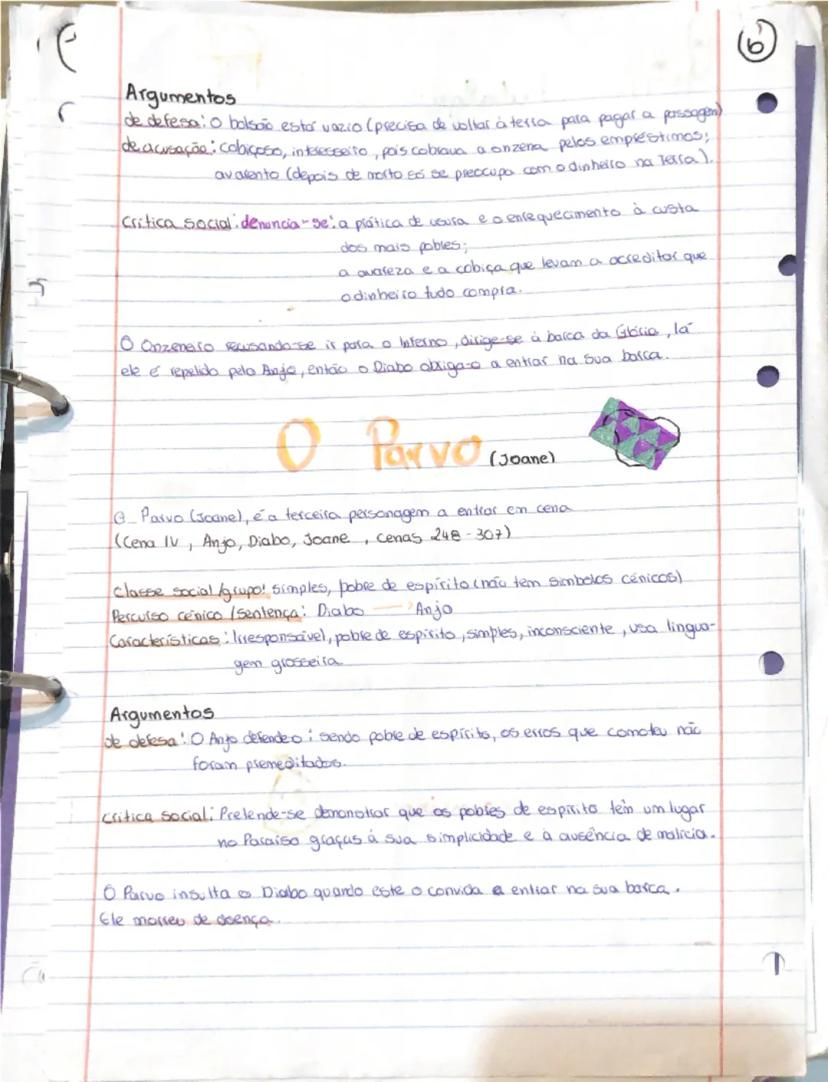 6
Argumentos
de defesa: O bolsão está vazio (precisa de voltar à terra para pagar a passagem)
de acusação: cobiçoso, interesseiro, pois cobrava a onzena pelos empréstimos;
avarento (depois de morto só se preocupa com o dinheiro na Terra).
Crítica social: denuncia-se: a prática de usura e o enrequecimento à custa
dos mais pobres;
a avareza e a cobiça que levam a acreditar que
o dinheiro tudo compra.
O Onzeneiro recusando-se ir para o Inferno, dirige-se à barca da Glória, lá
ele é repelido pelo Anjo, então o Diabo obriga-o a entrar na sua barca.
O Parvo (Joane)
O Parvo (Joane), é a terceira personagem a entrar em cena
(Cena IV, Anjo, Diabo, Joane, cenas 248-307)
Classe social/grupo: simples, pobre de espírito (não tem símbolos cénicos)
Percurso cénico/sentença: Diabo — Anjo
Características: Irresponsável, pobre de espírito, simples, inconsciente, usa lingua-
gem grosseira
Argumentos
de defesa: O Anjo defendeo: sendo pobre de espírito, os erros que cometeu não
foram premeditados.
crítica social: Pretende-se demonstrar que os pobres de espírito têm um lugar
no Paraíso graças à sua simplicidade e à ausência de malícia.
O Parvo insulta o Diabo quando este o convida a entrar na sua barca.
Ele morreu de doença.